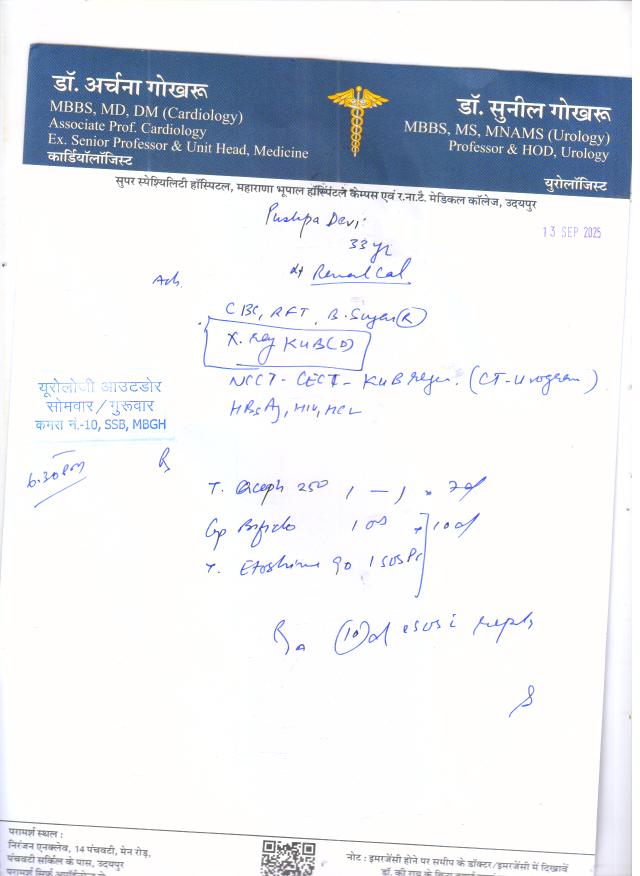 डॉ. अर्चना गोखरू
MBBS, MD, DM (Cardiology)
Associate Prof. Cardiology
Ex. Senior Professor & Unit Head, Medicine
कार्डियॉलॉजिस्ट
डॉ. सुनील गोखरू
MBBS, MS, MNAMS (Urology)
Professor & HOD, Urology
यूरोलॉजिस्ट
सुपर स्पेश्यिलिटी हॉस्पिटल, महाराणा भूपाल हॉस्पिटल कैम्पस एवं र.ना.टै. मेडिकल कॉलेज, उदयपुर
Pushpa Devi
13 SEP 2025
33 yr
Renal Cal
Adv.
CBC, RFT, B. Sugar (R)
X. Ray KUB (D)
NCCT - CECT - KUB region. (CT-Urogram)
HBsAg, HIV, HCV
यूरोलॉजी आउटडोर
सोमवार / गुरूवार
कमरा नं.-10, SSB, MBGH
6.30 PM
T. 250 1 - 1 x 7d
Cap Bifido 1 OD x 10d
T. Etoshine 90 1 SOS
(10) d
परामर्श स्थल :
निरंजन एनक्लेव, 14 पंचवटी, मेन रोड़,
पंचवटी सर्किल के पास, उदयपुर
नोट : इमरजेंसी होने पर समीप के डॉक्टर/इमरजेंसी में दिखावें